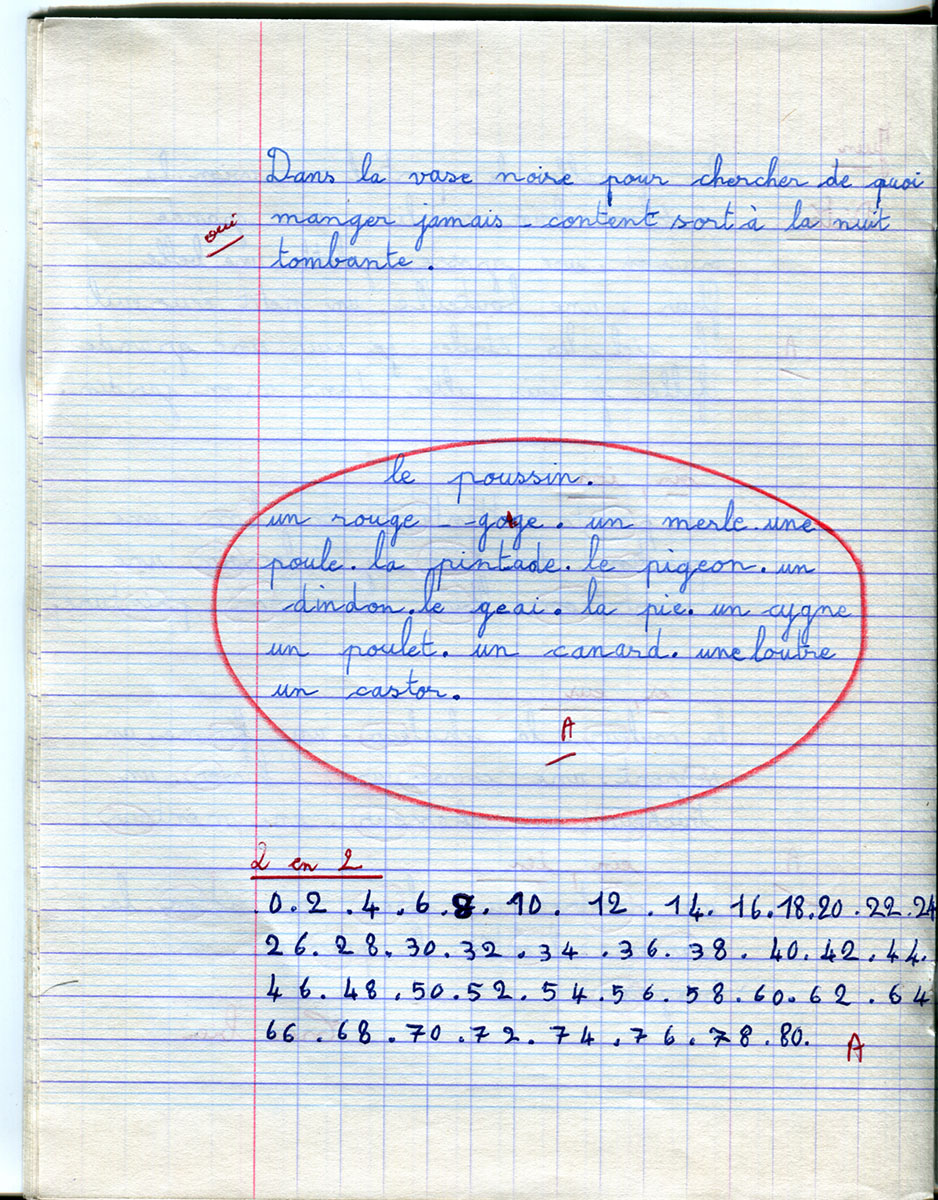 Dans la vase noire pour chercher de quoi
oui
manger jamais - content sort à la nuit
tombante.
le poussin.
un rouge - -gorge. un merle. une
poule. la pintade. le pigeon. un
dindon. le geai. la pie. un cygne
un poulet. un canard. une loutre
un castor.
A
2 en 2
0. 2 . 4 . 6 . 8. 10 . 12 . 14. 16. 18. 20 . 22. 24
26. 28. 30. 32 . 34 . 36. 38 . 40. 42 . 44.
46. 48 . 50. 52. 54. 56. 58 . 60. 62 . 64
66 . 68 . 70 . 72. 74 . 76. 78 . 80.
A